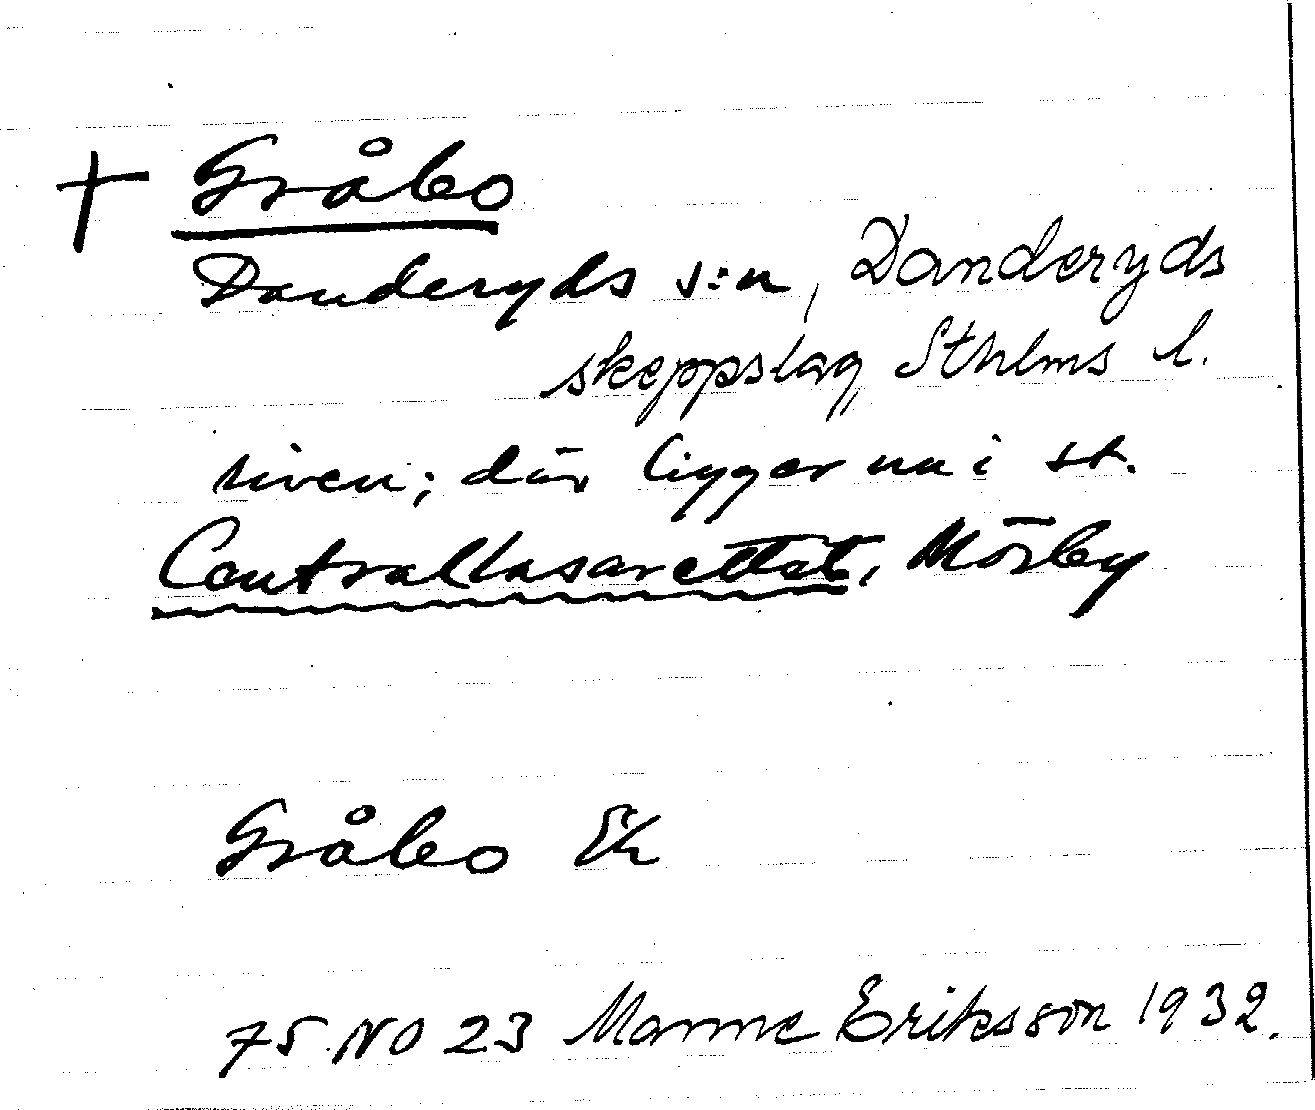 † Gråbo
Danderyds s:n, Danderyds
skeppslag Sthlms l.
riven; där ligger nu i st.
Centrallasarettet, Mörby
Gråbo Ek
75 NO 23 Manne Eriksson 1932.